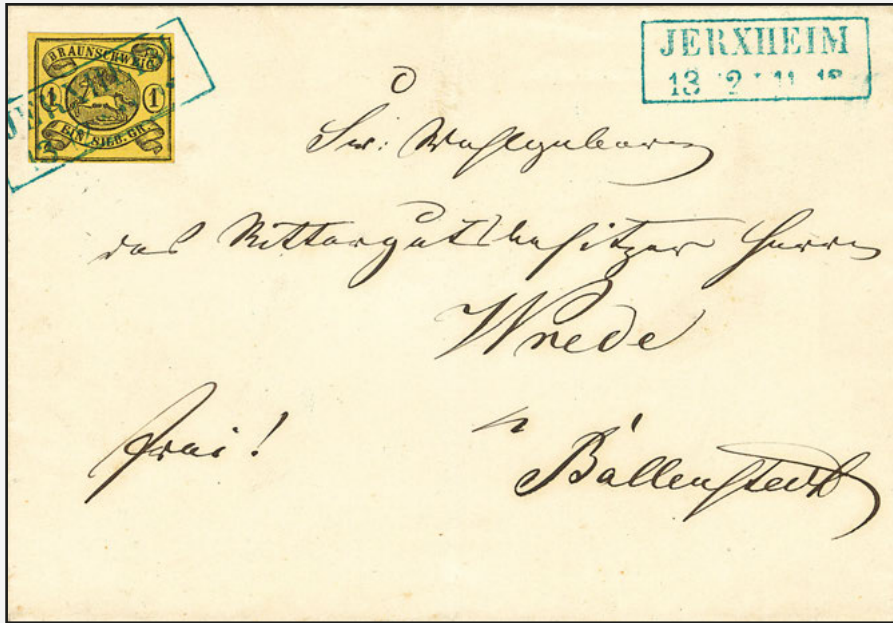 BRAUNSCHWEIG
1 1
EIN SILB. GR.
JERXHEIM
13 2 11-12
Sr: Wohlgeboren
des Rittergutsbesitzer Herrn
Wrede
Ballenstedt
frei!